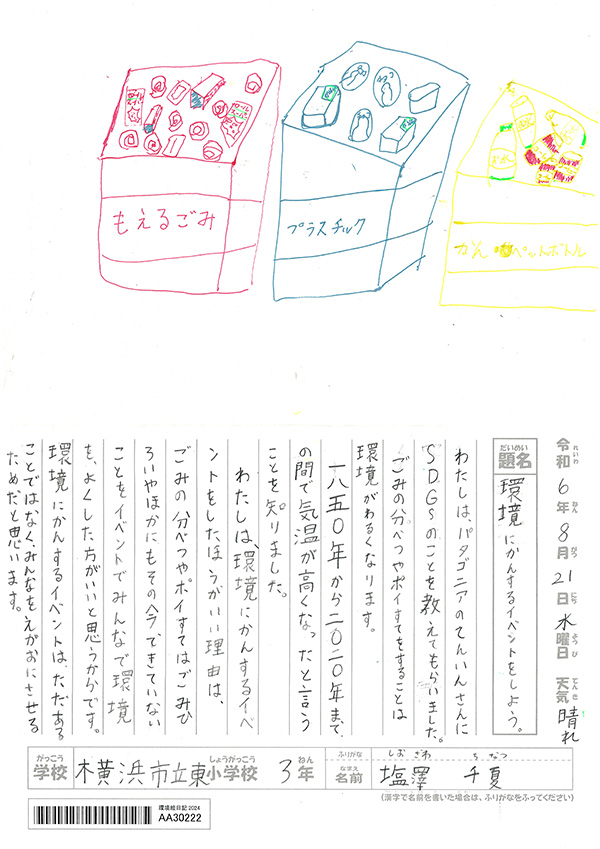 もえるごみ
プラスチック
かん ペットボトル
令和6年8月21日水曜日 天気 晴れ
題名 環境にかんするイベントをしよう。
わたしは、パタゴニアのてんいんさんに
SDGsのことを教えてもらいました。
ごみの分べつやポイすてをすることは
環境がわるくなります。
一八五〇年から二〇二〇年まで、
の間で気温が高くなったと言う
ことを知りました。
わたしは、環境にかんするイベ
ントをしたほうがいい理由は、
ごみの分べつやポイすてはごみひ
ろいやほかにもその今できていない
ことをイベントでみんなで環境
を、よくした方がいいと思うからです。
環境にかんするイベントは、ただある
ことではなく、みんなをえがおにさせる
ためだと思います。
がっこう しょうがっこう ねん ふりがな しおざわ ちなつ
学校 横浜市立東小学校 3年 名前 塩澤 千夏
(漢字で名前を書いた場合は、ふりがなをふってください)
環境絵日記2024
AA30222